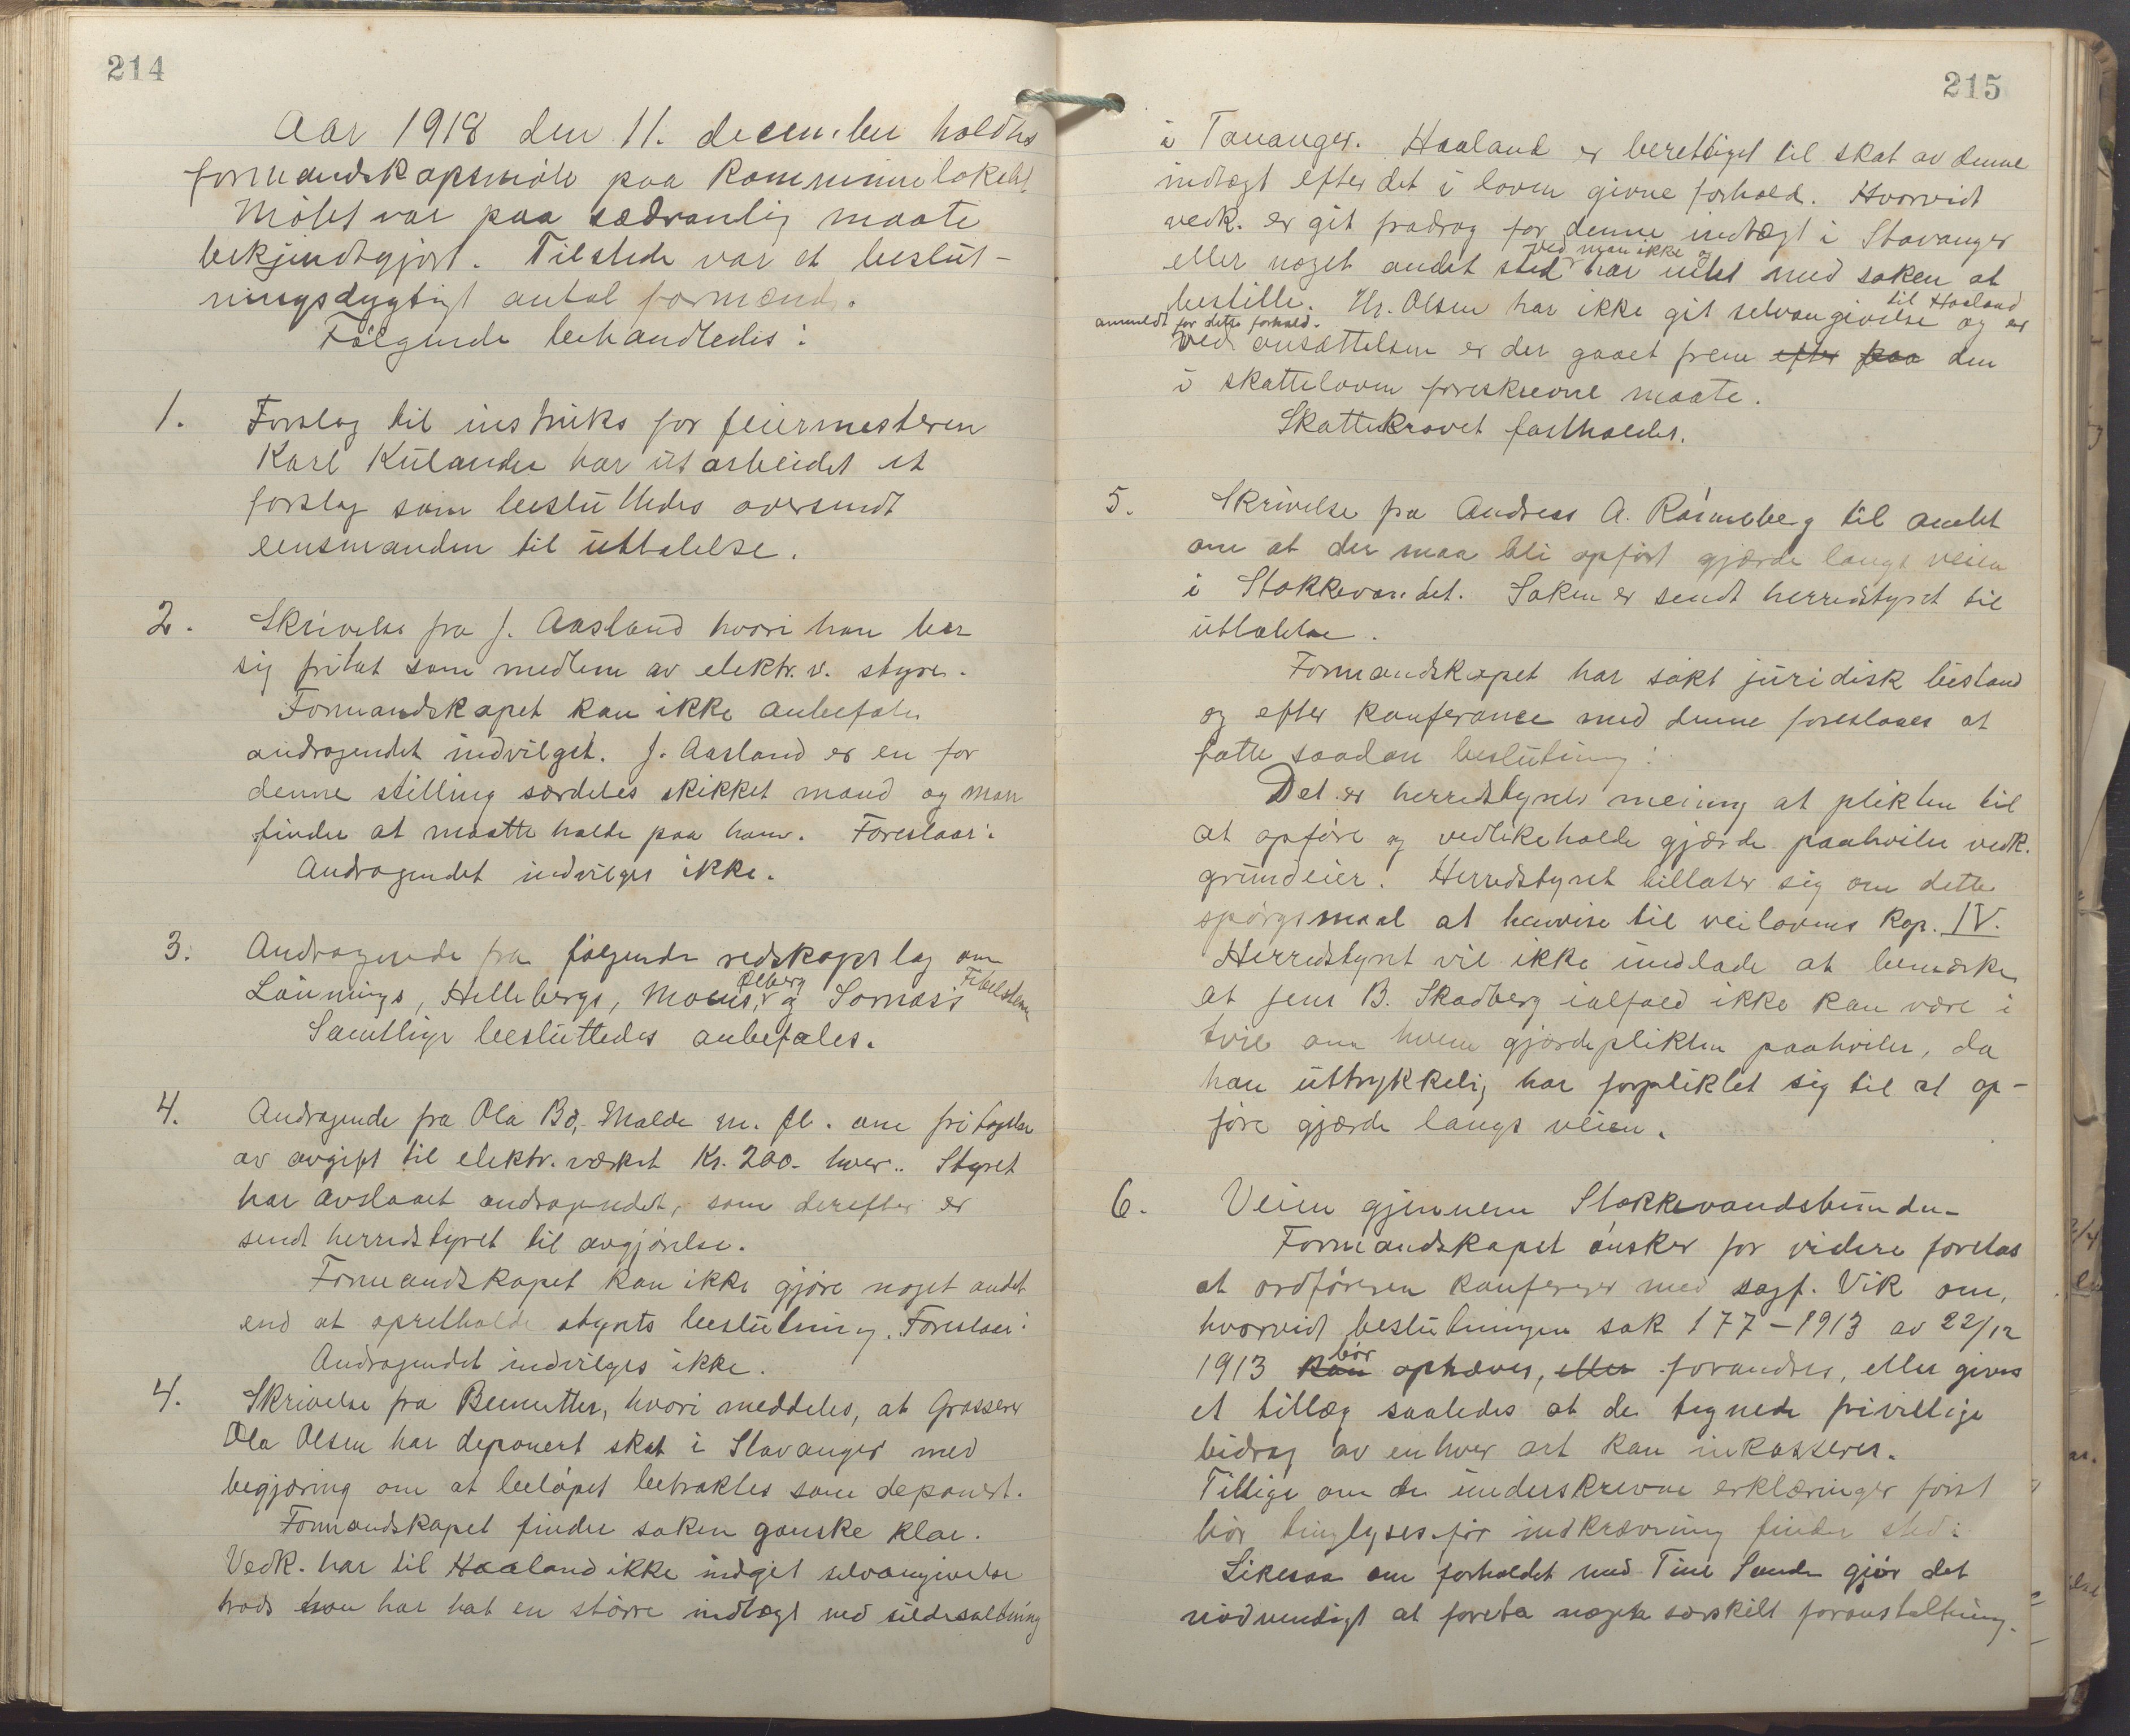 214
Aar 1918 den 11. december holdtes
formandskapsmøte paa kommunelokalet.
Møtet var paa sædvanlig maate
bekjendtgjort. Tilstede var et beslut-
ningsdygtigt antal formænd.
Følgende behandledes:
1. Forslag til instruks for feiermesteren
Karl Kulander har utarbeidet et
forslag som besluttedes oversendt
lensmanden til uttalelse.
2. Skrivelse fra J. Aasland hvori han ber
sig fritat som medlem av elektr. v. styre.
Formandskapet kan ikke anbefale
andragendet indvilget. J. Aasland er en for
denne stilling særdeles skikket mand og man
finder at maatte holde paa ham. Foreslaar:
Andragendet indvilges ikke.
3. Andragende fra følgende redskapslag om
Lønnings, Hellebergs, Moens, Ølberg og Somas's
Samtlige besluttedes anbefales.
4. Andragende fra Ola Bø, Malde m. fl. om fritagelse
av avgift til elektr. verket Kr. 200.- hver. Styret
har avslaaet andragendet, som derefter er
sendt herredstyret til avgjørelse.
Formandskapet kan ikke gjøre noget andet
end at opretholde styrets beslutning. Foreslaar:
Andragendet indvilges ikke.
4. Skrivelse fra hvori meddeles, at Grosserer
Ola Olsen har deponert skat i Stavanger med
begjæring om at beløpet betraktes som deponert.
Formandskapet finder saken ganske klar.
Vedk. har til Haaland ikke indgit selvangivelse
trods han har hat en større indtægt ved sildesaltning
215
i Tananger. Haaland er berettiget til skat av denne
indtægt efter det i loven givne forhold. Hvorvidt
vedk. er git fradrag for denne indtægt i Stavanger
eller noget andet sted ved man ikke og har intet med saken at
bestille. Hr. Olsen har ikke git selvangivelse til Haaland og er
anmeldt for dette forhold.
Ved ansættelsen er der gaaet frem efter paa den
i skatteloven foreskrevne maate.
Skattekravet fastholdes.
5. Skrivelse fra Andreas A. Rønneberg til amtet
om at der maa bli opført gjærde langs veien
i Stokkevandet. Saken er sendt herredstyret til
uttalelse.
Formandskapet har søkt juridisk bistand
og efter konferance med denne foreslaaes at
fatte saadan beslutning:
Det er herredstyrets mening at plikten til
at opføre og vedlikeholde gjærde paahviler vedk.
grundeier. Herredstyret tillater sig om dette
spørgsmaal at henvise til veilovens kap. IV.
Herredstyret vil ikke undlade at bemærke
at Jens B. Skadberg ialfald ikke kan være i
tvil om hvem gjærdeplikten paahviler, da
han uttrykkelig har forpliktet sig til at op-
føre gjærde langs veien.
6. Veien gjennem Stokkevandsbunden
Formandskapet ønsker før videre foretas
at ordføreren konfererer med sagf. Vik om,
hvorvidt beslutningen sak 177-1913 av 22/12
1913 kan bør ophæves, eller forandres, eller gives
et tillæg saaledes at de tegnede frivillige
bidrag av enhver art kan inkasseres.
Tillige om de underskrevne erklæringer først
bør tinglyses før indkrævning finder sted:
Likesaa om forholdet med Tine Sande gjør det
nødvendigt at foreta nogen særskilt foranstaltning.